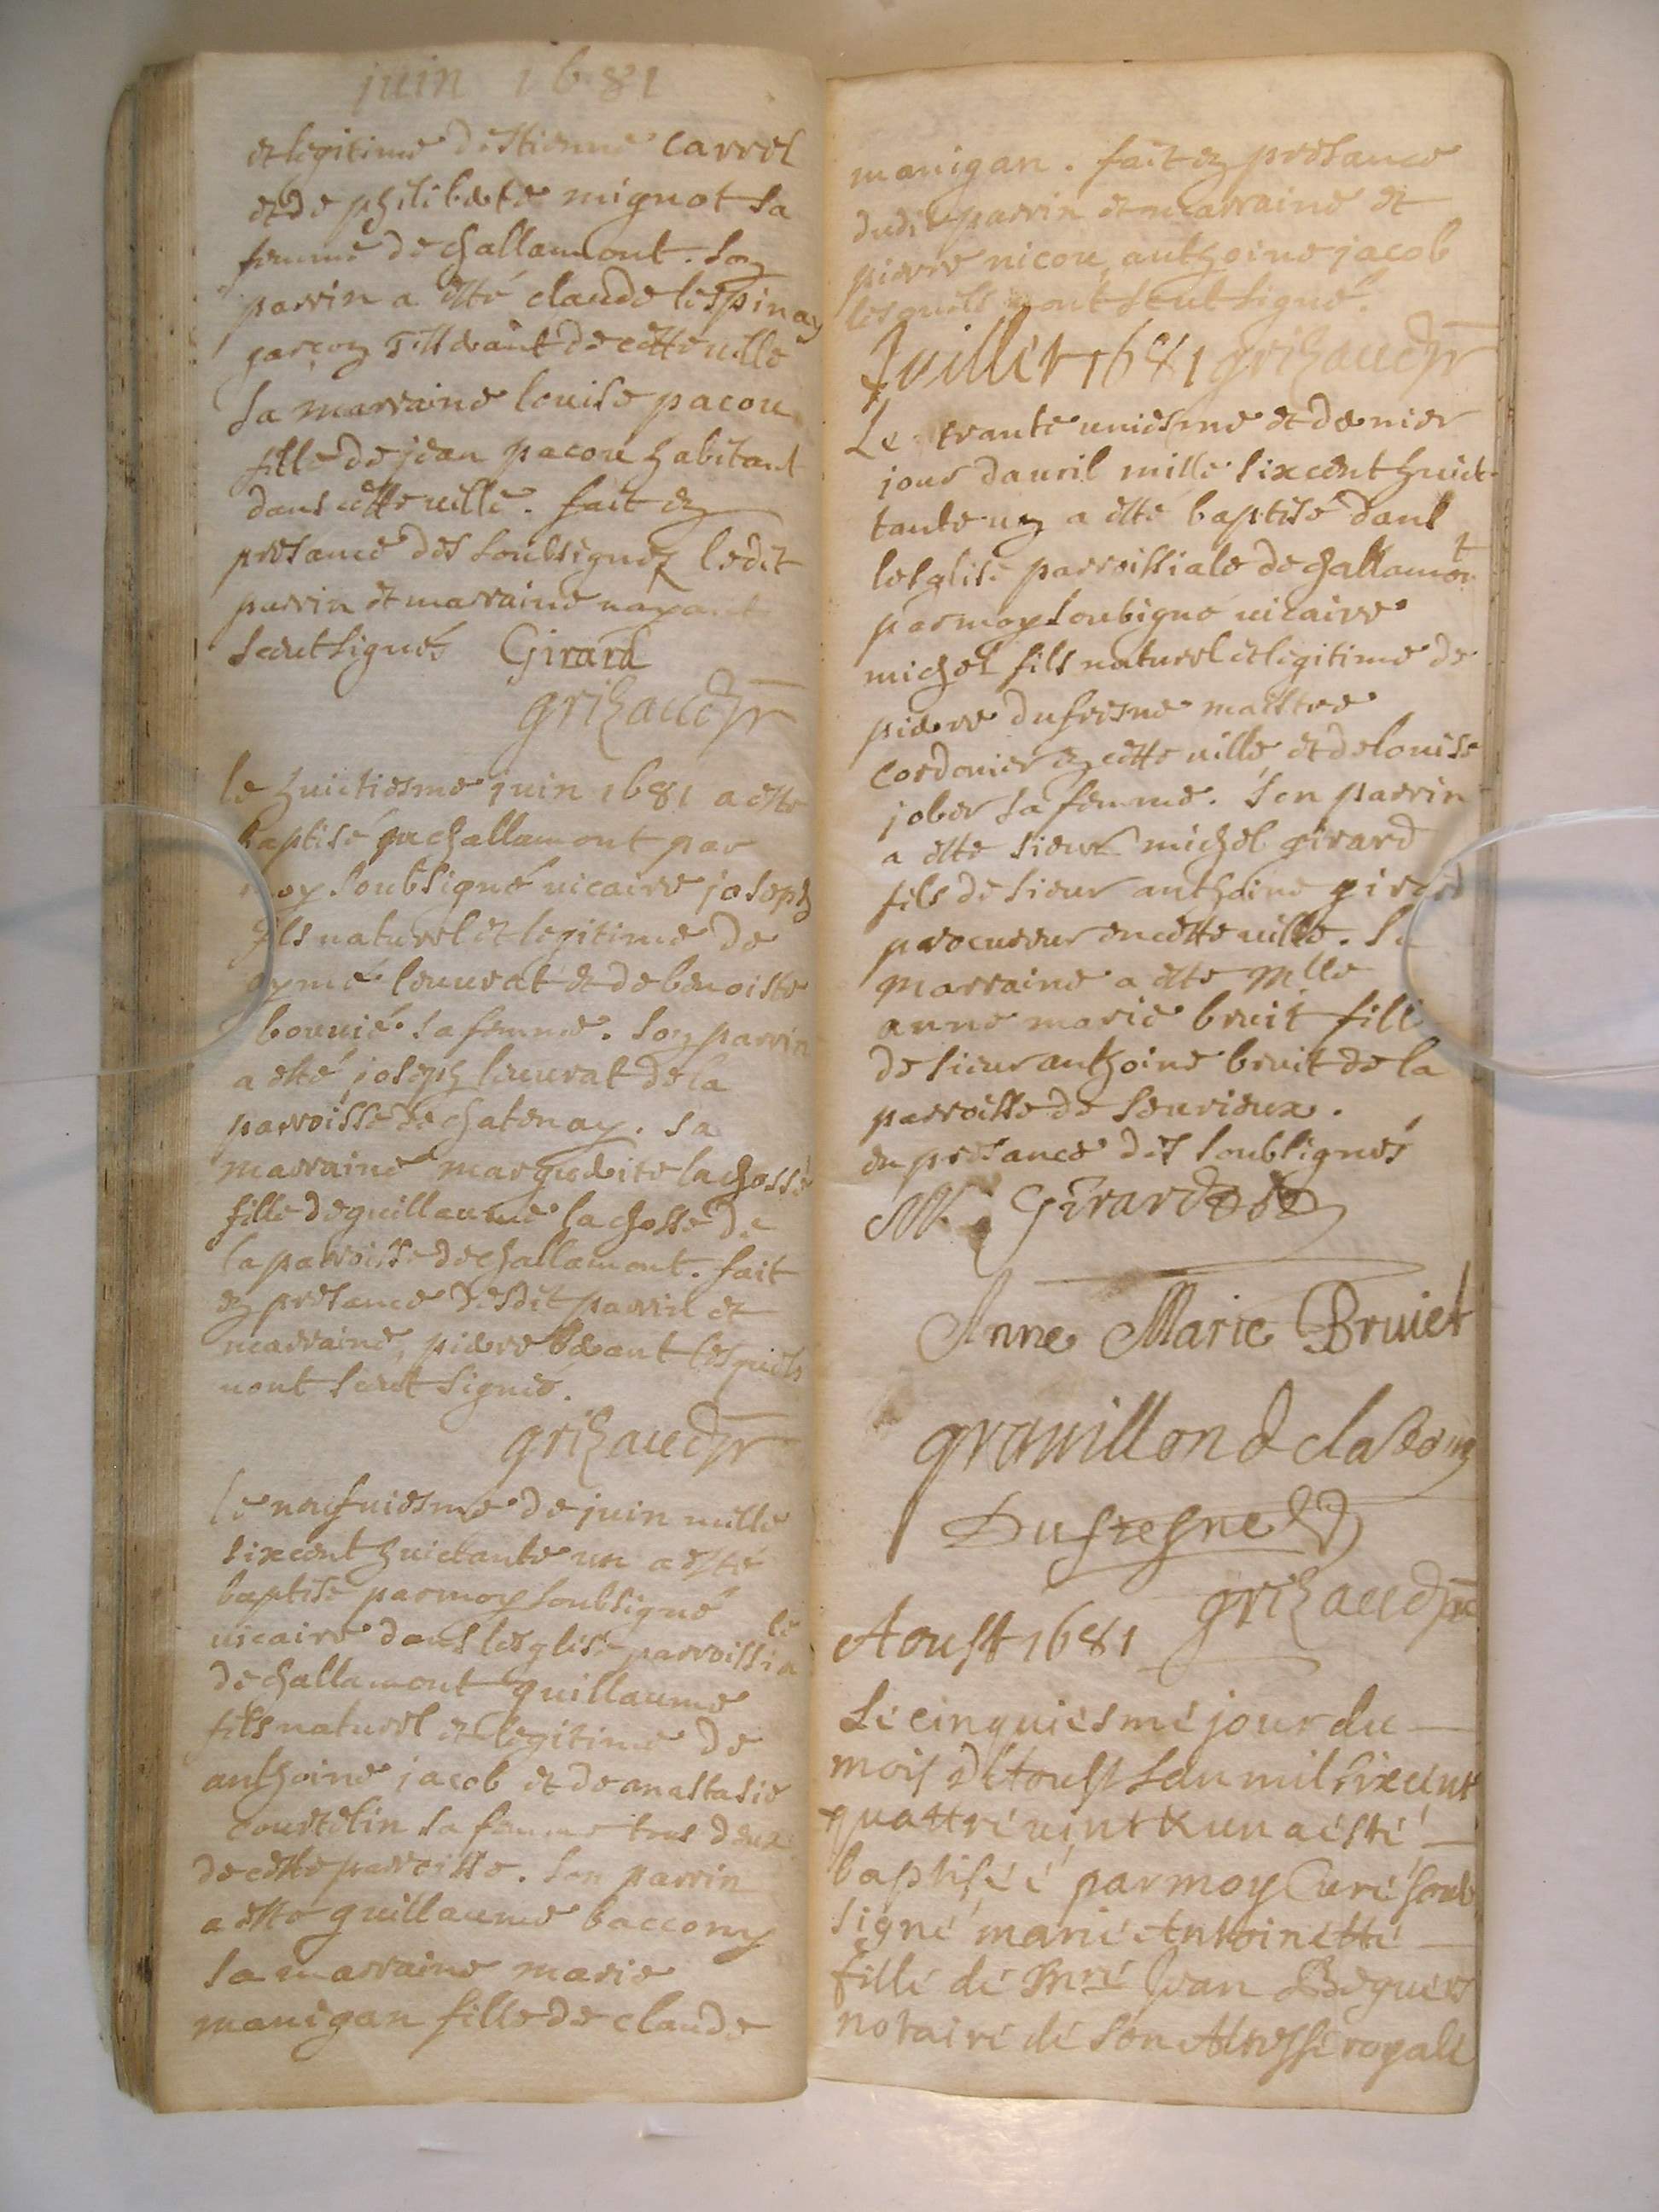 juin 1681
et legitime destienne Carrel
et de philiberte mignot sa
femme de challamont. son
parrin a esté claude lespinay
garçon de cette uille
sa marraine louise pacou
fille de jean pacou habitant
dans cette uille. fait en
presance des soubsignez ledit
parrin et marraine nayant
sceut signés Girard
grizaud
le huictiesme juin 1681 a esté
baptisé challamont par
moy soubsigné uicaire joseph
fils naturel et legitime de
aymé leuurat et de benoiste
bouuié sa femme. son parrin
a esté joseph leuurat de la
parroisse de chatenay. sa
marraine marguerite la chosse
fille de guillaume la chosse de
la parroisse de challamont. fait
en presance desdit parrin et
marraine, pierre lesquels
nont sceut signé.
grizaud
le neufuiesme de juin mille
sixcent huictante un a esté
baptisé par moy soubsigné
uicaire dans lesglise parroissiale
de challamont guillaume
fils naturel et legitime de
anthoine jacob et de anastasie
courtelin sa femme tous deux
de cette parroisse. son parrin
a esté guillaume baccony
sa marraine marie
manigan fille de claude
manigan. fait en presance
dudit parrin et marraine et
pierre nicou, anthoine jacob
lesquels nont sceut signé.
Juillet 1681 grizaud
Le trante uniesme et dernier
jour dauril mille sixcent huict-
tante un a esté baptisé dans
lesglise parroissiale de challamont
par moy soubigné uicaire
michel fils naturel et legitime de
pierre dufresne maistre
cordonier en cette uille et de louise
jober sa femme. son parrin
a esté sieur michel girard
fils de sieur anthoine girard
procureur en cette uille. sa
marraine a esté Mlle
anne marie bruit fille
de sieur anthoine bruit de la
parroisse de seurieux.
en presance des soubsignés
M. Girard
Anne Marie Bruiet
grauillon
Dufresne
grizaud
Aoust 1681
Le cinquiesme jour du
mois d'Aoust lan mil sixcent
quattre uint & un a esté
baptisée par moy Curé soub
signé, marie Antoinette
fille de Mre Jean Beguet
notaire de son Altesse royale